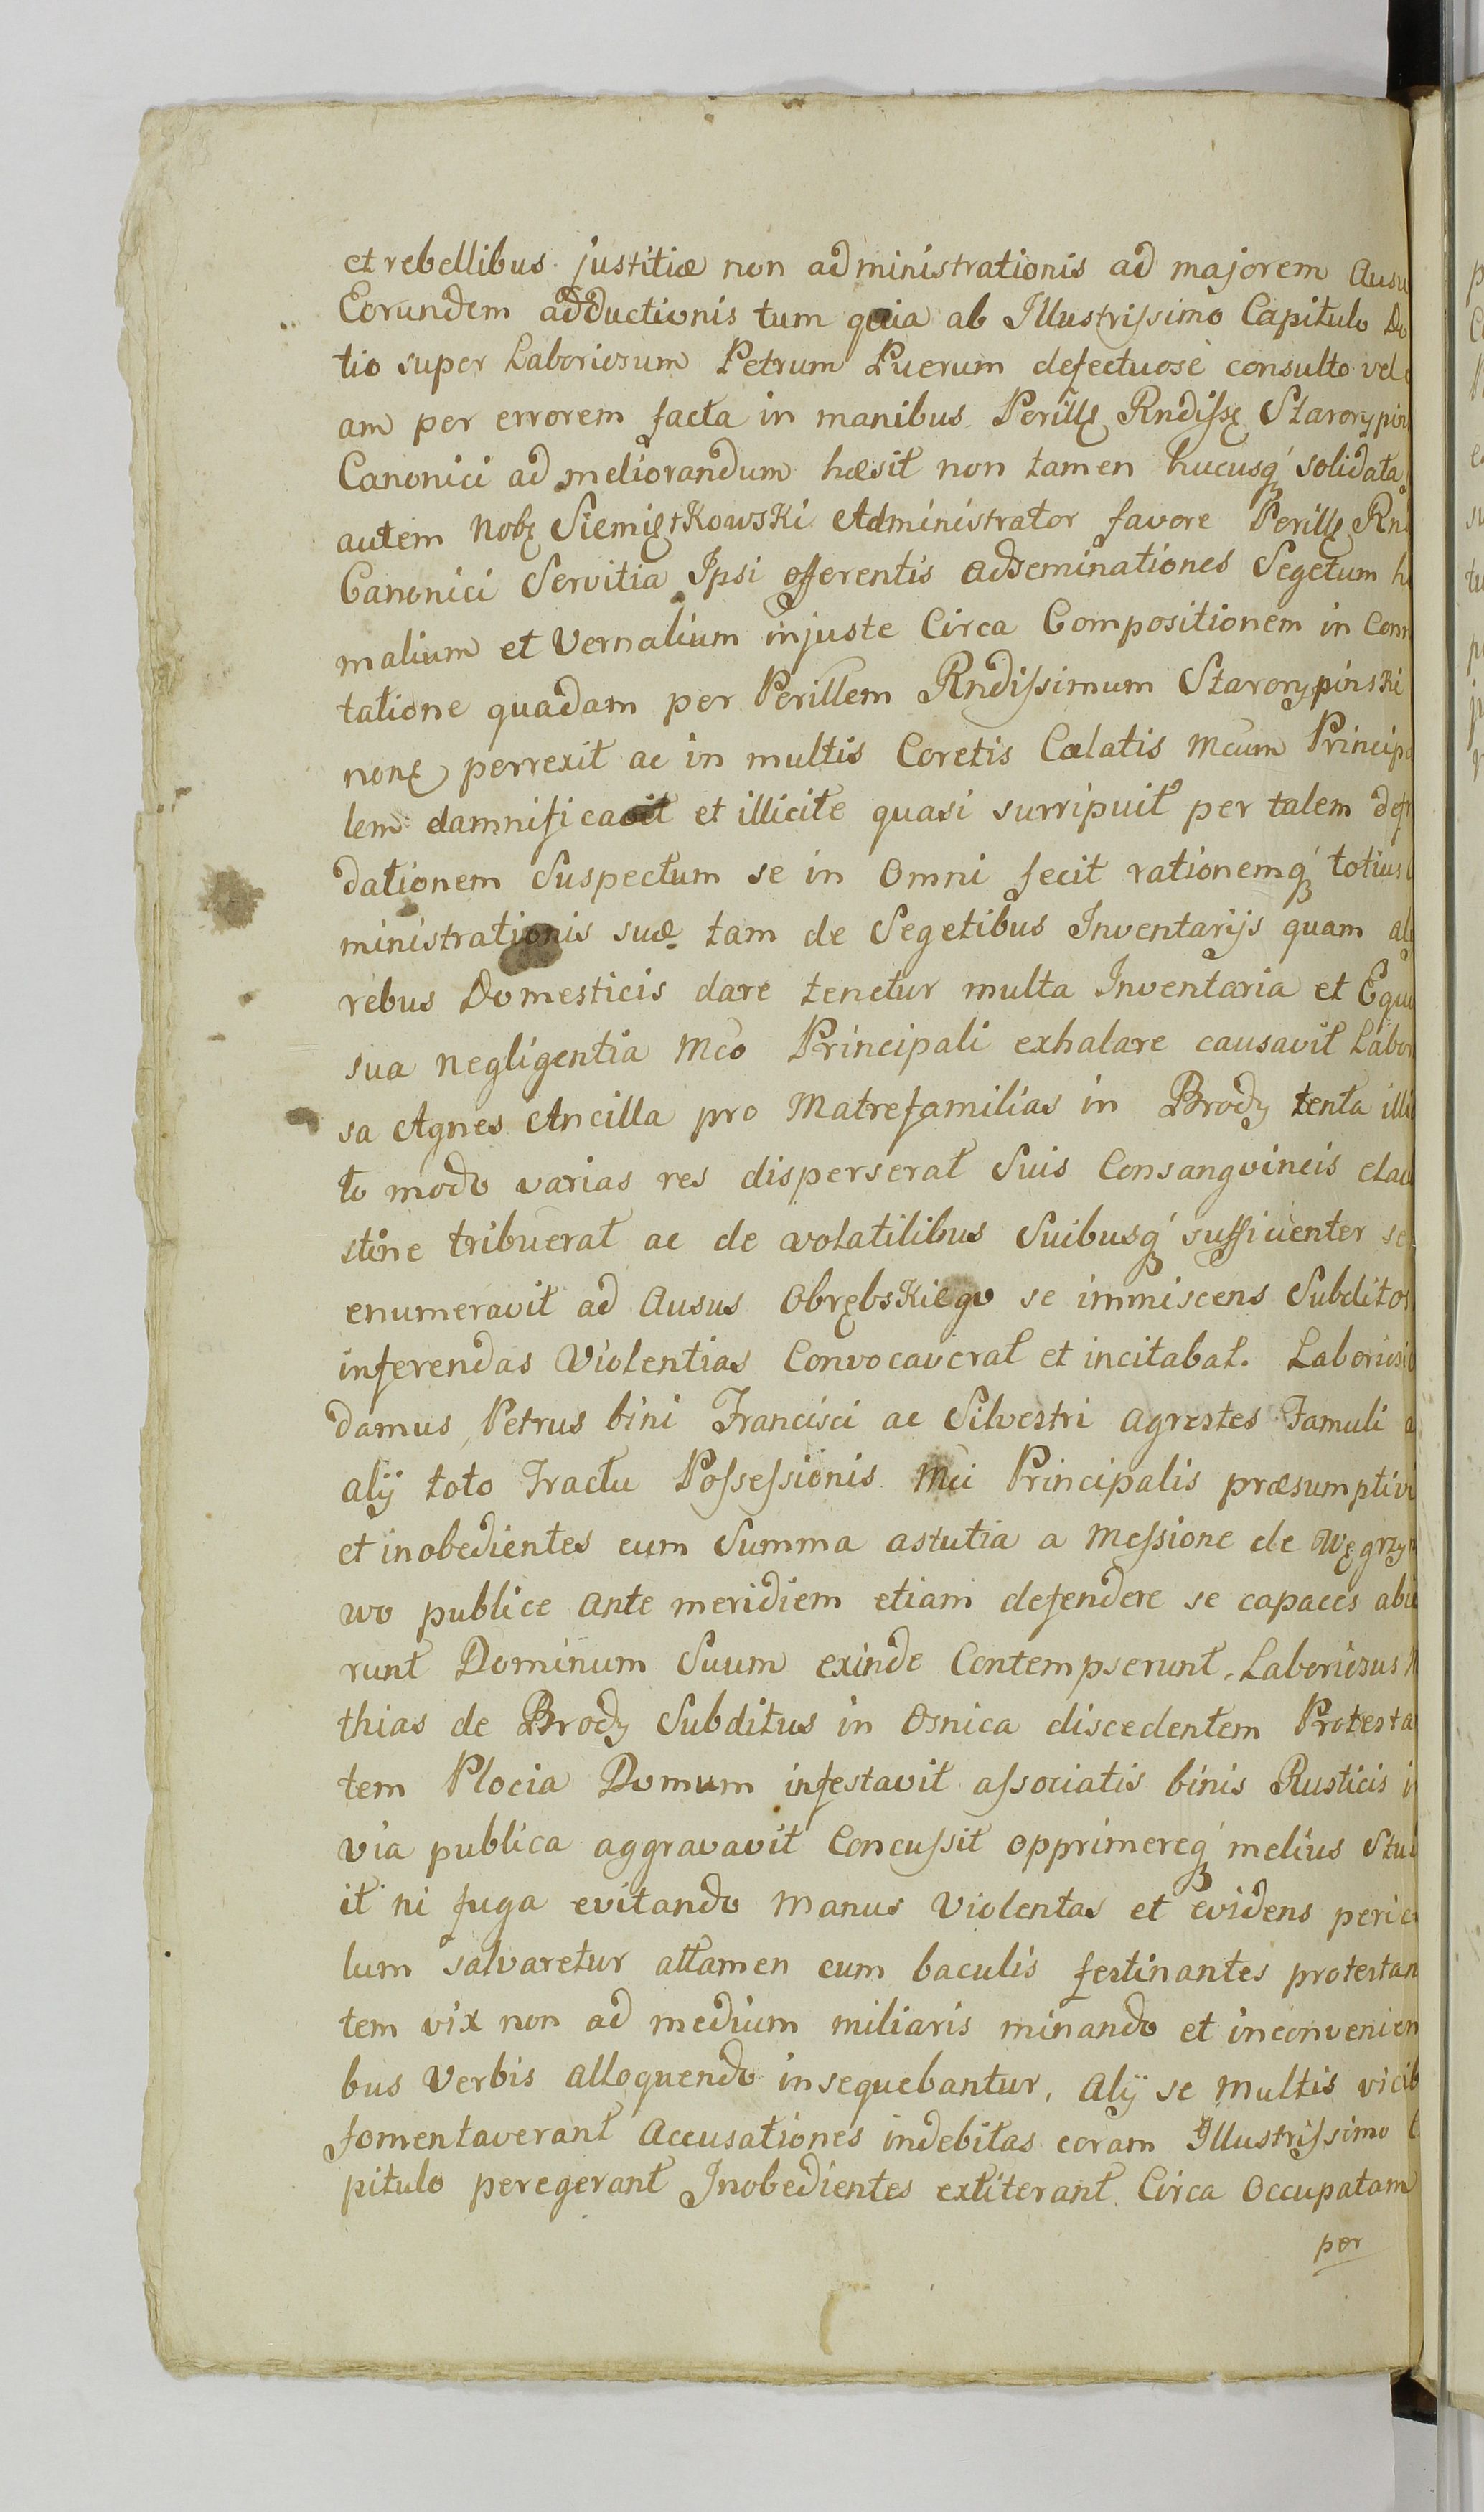 et rebellibus justitiæ non administrationis ad majorem Ausu
Eorundem adductionis tum quia ab Illustrissimo Capitulo Do
tio super Laboriosum Petrum Puerum defectuose consulto vel
am per errorem facta in manibus Perillę Rndissę Starorypin
Canonici ad meliorandum hæsit non tamen hucusq́ solidata
autem Nobę SiemiętKowsKi Administrator favore Perillę Rn
Canonici Servitia Ipsi offerentis adseminationes Segetum h
malium et Vernalium injuste Circa Compositionem in Com
tatione quadam per Perillem Rndissimum StarorypinsKi
nonę perrexit ac in multis Coretis Cælatis Mcum Principa
lem damnificavit et illicite quasi surripuit per talem def
dationem Suspectum se in Omni fecit rationemq́ totius
ministrationis suæ tam de Segetibus Inventarijs quam al
rebus Domesticis dare tenetur multa Inventaria et Equ
sua negligentia Mco Principali exhalare causavit Labor
sa Agnes Ancilla pro Matrefamilias in Brody tenta illi
to modo varias res disperserat Suis Consangvineis clan
stine tribuerat ac de volatilibus Suibusq́ sufficienter se
enumeravit ad Ausus ObrębsKiego se immiscens Subditos
inferendas Violentias Convocaverat et incitabat. Laborios
damus Petrus bini Francisci ac Silvestri agrestes Famuli a
alij toto Tractu Possessionis Mci Principalis præsumptivi
et inobedientes cum Summa astutia a Messione de Węgrzyn
wo publice ante meridiem etiam defendere se capaces abie
runt Dominum Suum exinde Contempserunt. Laboriosus M
thias de Brody Subditus in Osnica discedentem Protesta
tem Plocia Domum infestavit associatis binis Rusticis in
via publica aggravavit Concussit opprimereq́ melius Stud
it ni fuga evitando Manus Violentas et evidens pericu
lum salvaretur attamen cum baculis festinantes protestan
tem vix non ad medium miliaris minando et inconvenien
bus Verbis alloquendo insequebantur, Alij se Multis vicib
fomentaverant Accusationes indebitas coram Illustrissimo C
pitulo peregerant Inobedientes extiterant Circa Occupatam
per